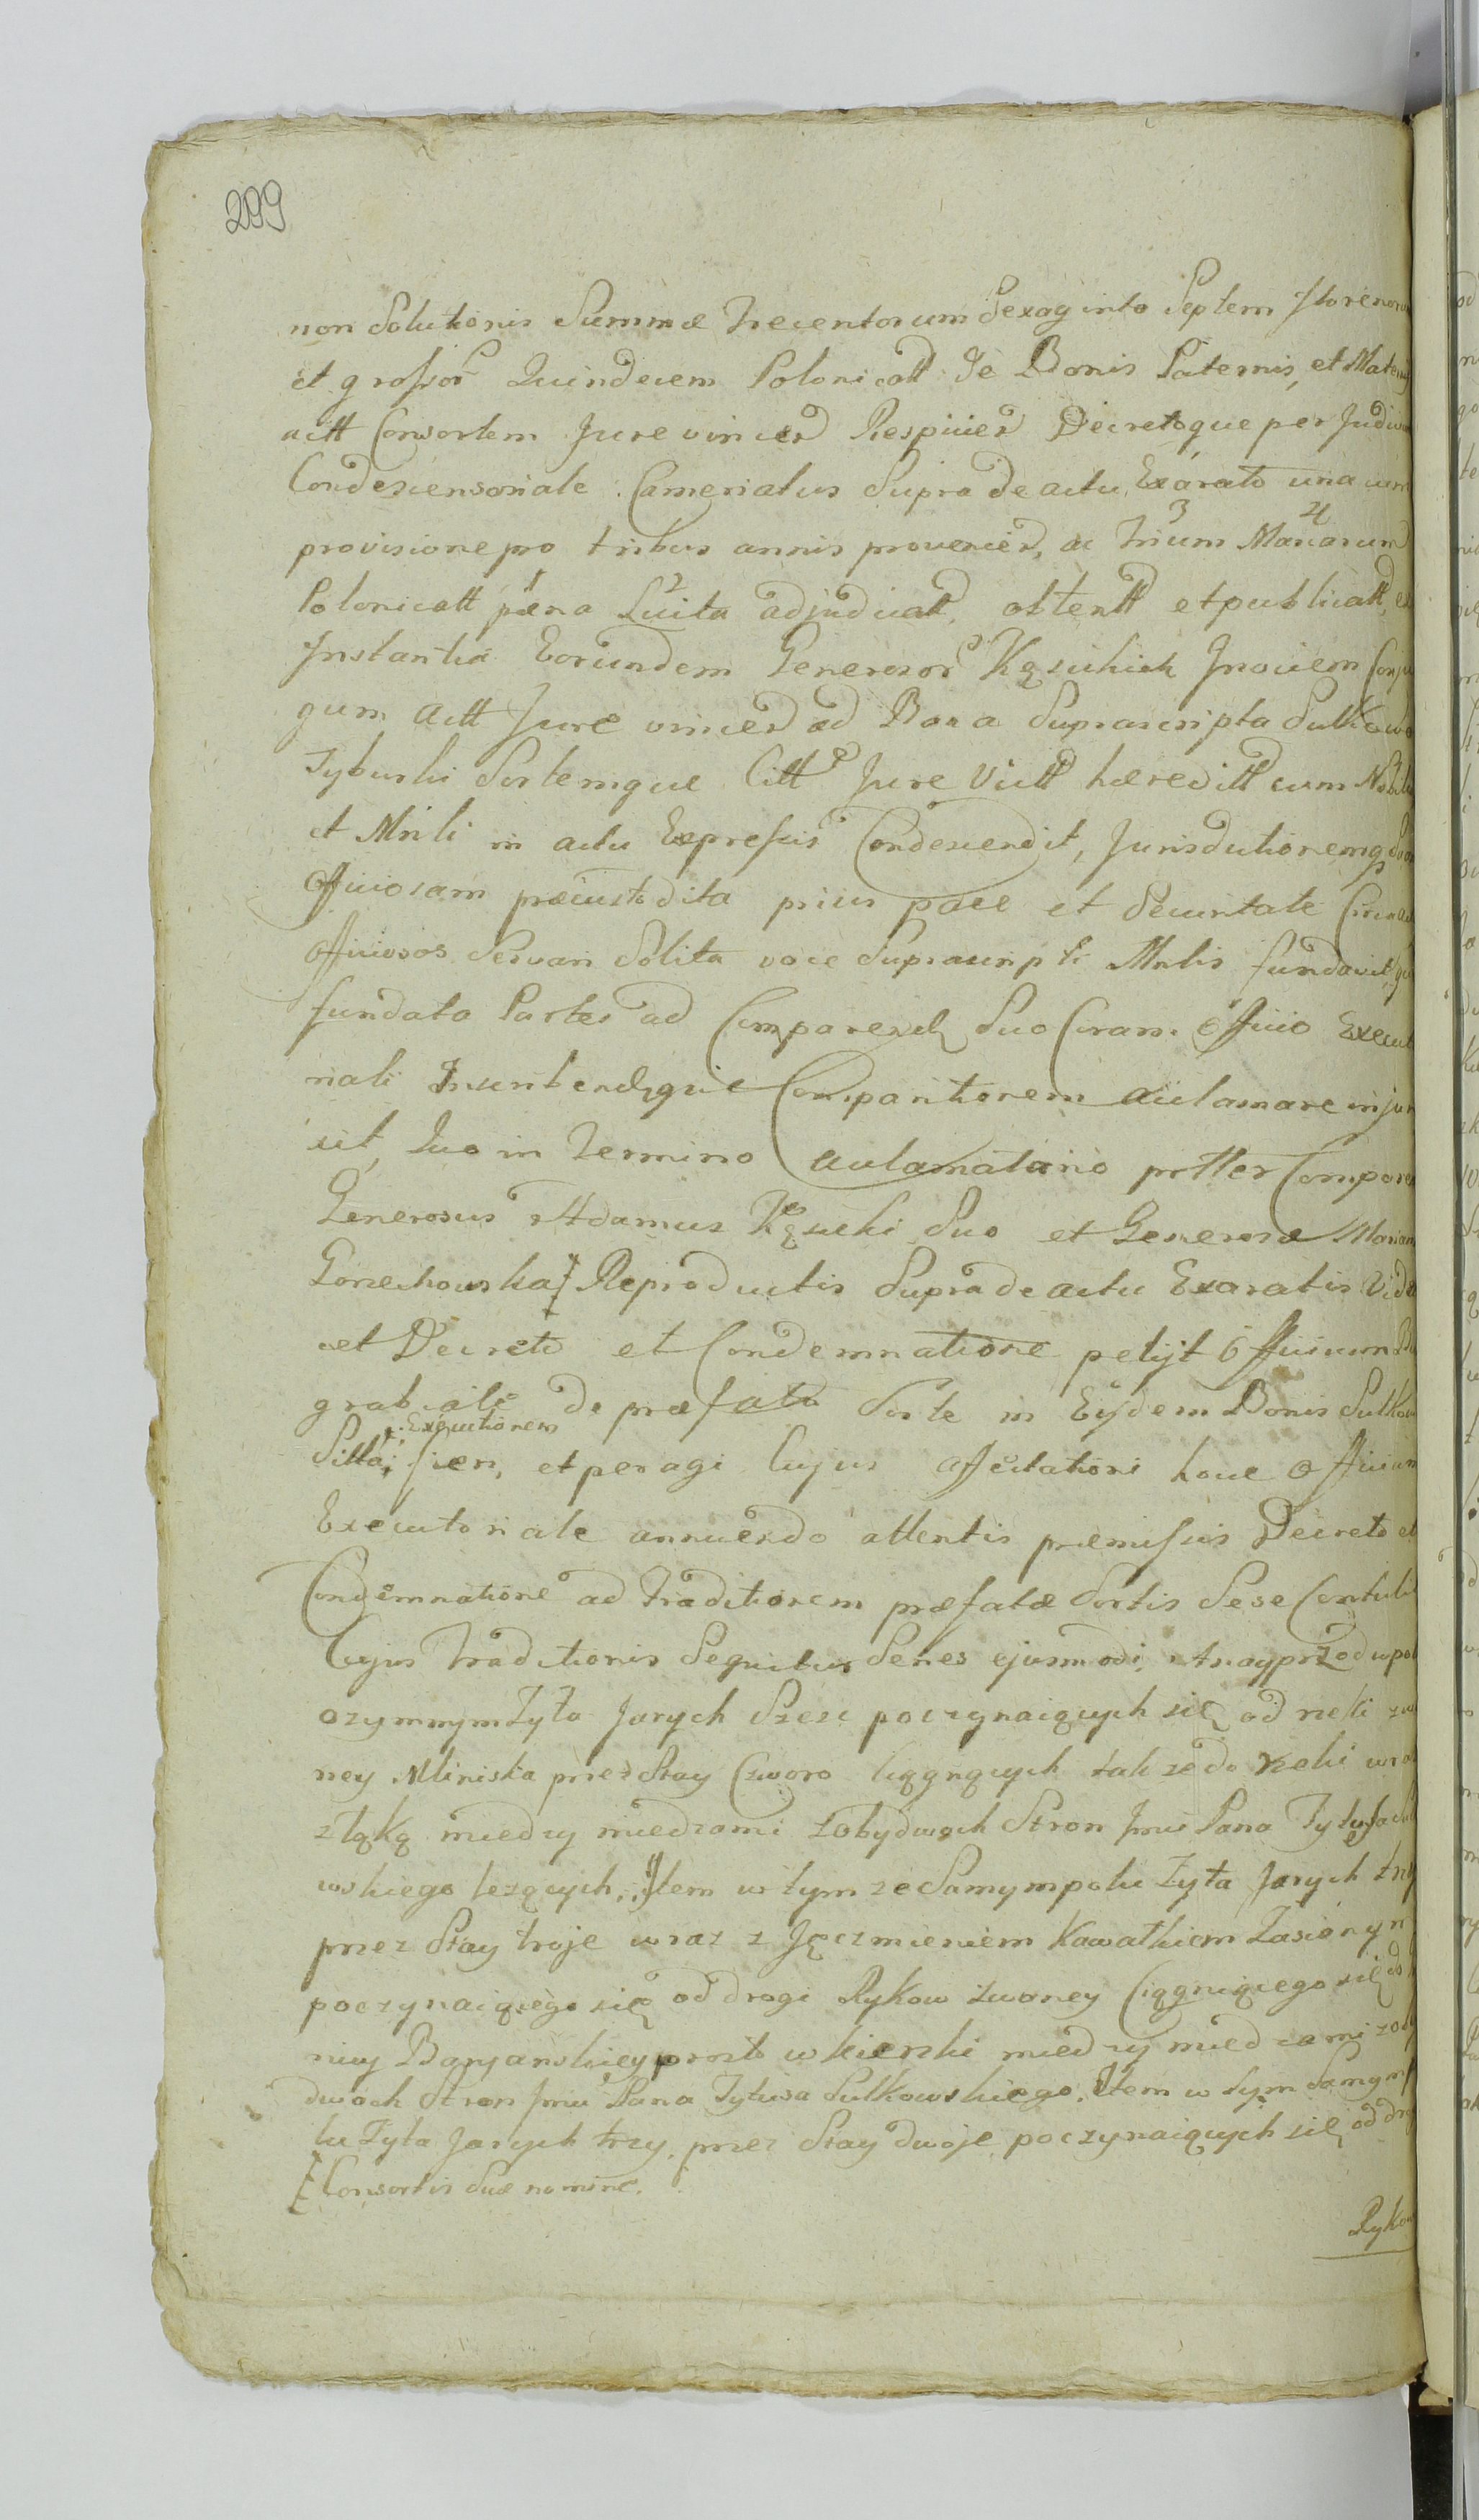 299
non Solutionis Summæ Trecentorum Sexaginta Septem florenor
et grossor Quindecem Polonicatt de Bonis Paternis, et Matern
actt Consortem Jure vinced Respicied Decretoque per Judiciu
Condescensoriale Camerialus Supra de actu Exarato una cum
provisione pro tribus annis provenied, ac Trium 3 Marcarum 4
Polonicatt pæna 1 Luita 2 adjudicatt, obtentt et publicatt, ex
Instantia Eorundem Generosor Kęsickich Invicem Conju
gum actt Jure vinced ad Bona Suprascripta Sulkowo
Tyburki Sortemque Citt Jure Victt hæreditt cum Nobili
et Mnli in actu Expressis Condescendit, Jurisdictionemq Suam
Officiosam præcustodita prius pace et Securitate Circa act
Officiosos Servari Solita voce Suprascripti Mnlis fundavit, qua
fundata Partes ad Comparend Suo Coram Officio Execut
riali Inscribendque Comparitionem acclamare injun
xit, Quo in Termino acclamatorio prtter Comparens
Generosus Adamus Kęsicki Suo et Generosæ Mariann
Gorzechowska Reproductis Supra de actu Exaratis Vide
cet Decreto et Condemnatione petijt Officium Bur
grabiale de præfata Sorte in Eijsdem Bonis Sulkow
Sitta, Executionem fieri, et peragi Cujus affectationi hocce Officium
Executoriale annuendo attentis præmissis Decreto et
Condemnatione ad Traditionem præfatæ Sortis Sese Contulit
Cujus Traditionis Sequitur Series ejusmodi, A nayprzod w pol
ozymnym Żyta Jarych Szesc poczynaiących się od rzeki zwa
ney Mliniska przez Stay Czworo Ciągnących tak ze do rzeki wraz
z łąką między miedzami z obydwoch Stron Jmci Pana Tytusa Sul
wskiego lezących, Item w tym ze Samym polu Żyta Jarych trzy
przez Stay troje wraz z Jęczmieniem Kawałkiem Zasionym
poczynaiącego się od drogi Rykow zwaney Ciągniącego się do
nicy Baryanskiey prosto w kierzki między miedzami z oby
dwoch Stron Jmci Pana Tytusa Sulkowskiego. Item w tym Samym po
lu Żyta Jarych trzy przez Stay dwoje poczynaiących się od drog
Consortis Suæ nomine.
Rykow